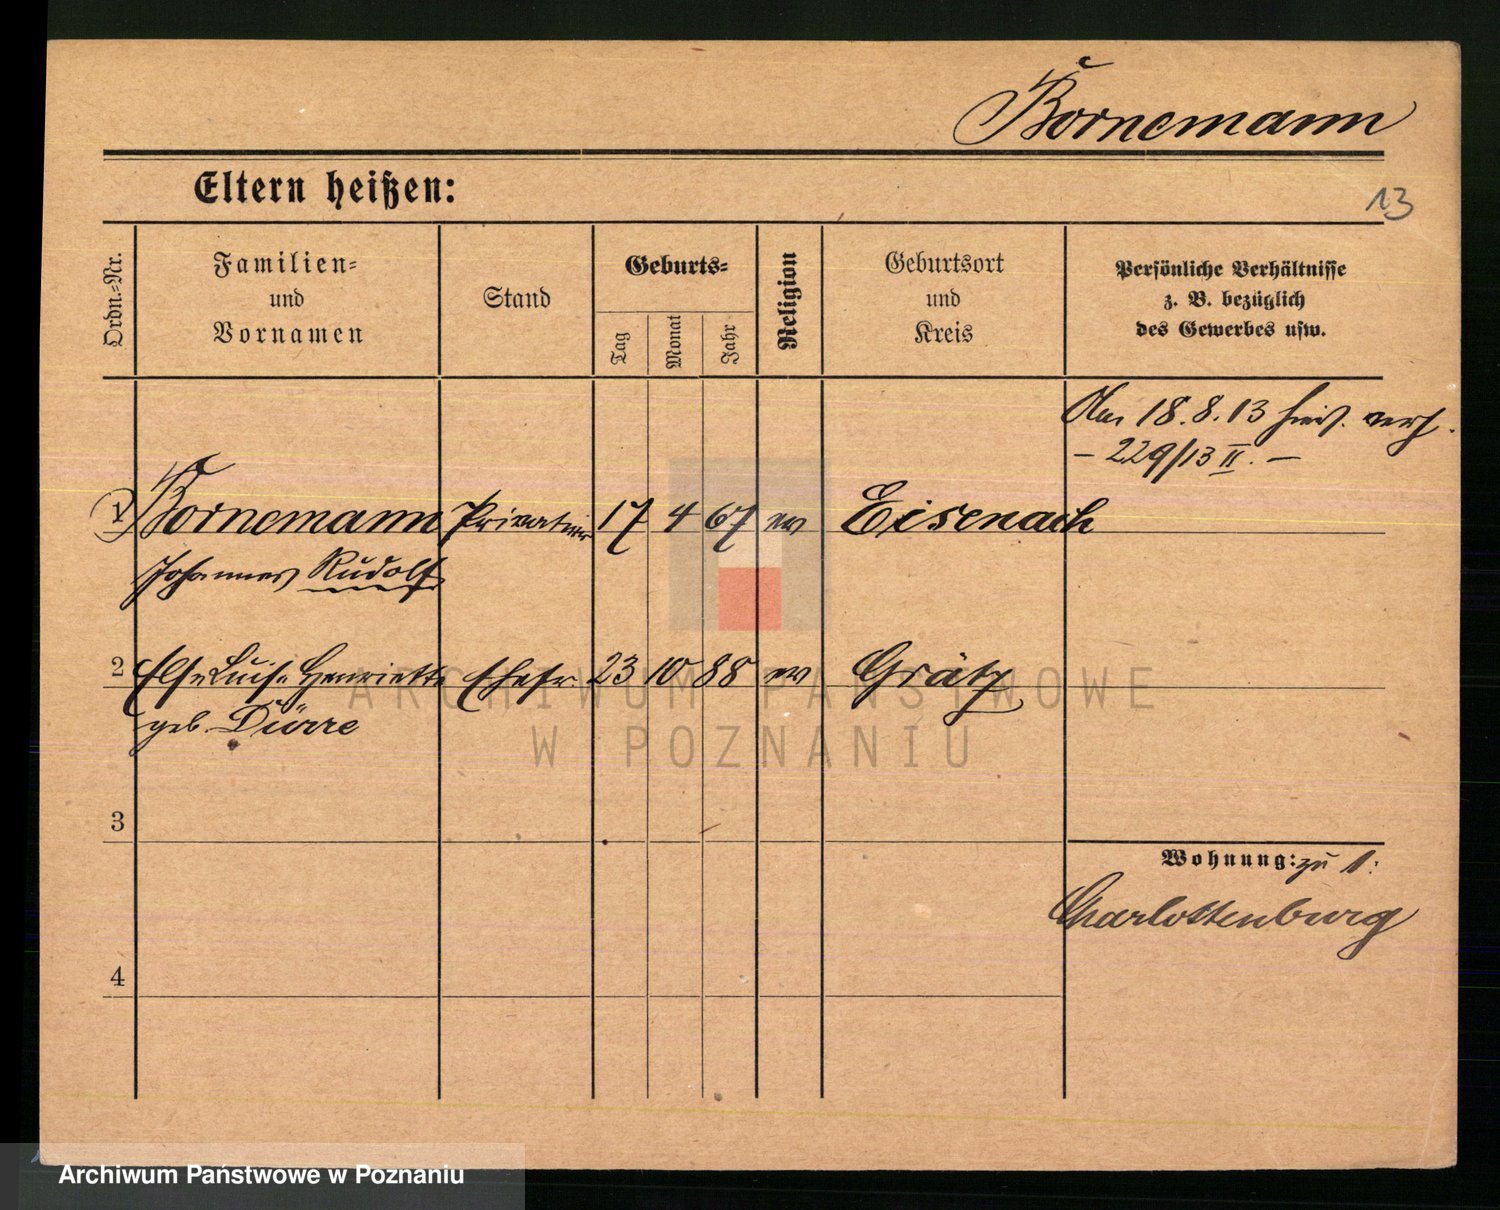 Bornemann
Eltern heißen:
13
Ordn.-Nr.
Familien-
und
Vornamen
Stand
Geburts-
Tag
Monat
Jahr
Religion
Geburtsort
und
Kreis
Persönliche Verhältnisse
z. B. bezüglich
des Gewerbes usw.
Am 18.8.13 hies. verh.
- 229/13 II. -
1 Bornemann Privatier 17 4 67 ev Eisenach
Johannes Rudolf
2 Else Luise Henriette Ehefr. 23 10 88 ev Grätz
geb. Dürre
3
Wohnung: zu 1.
Charlottenburg
4
ARCHIWUM PAŃSTWOWE
W POZNANIU
Archiwum Państwowe w Poznaniu